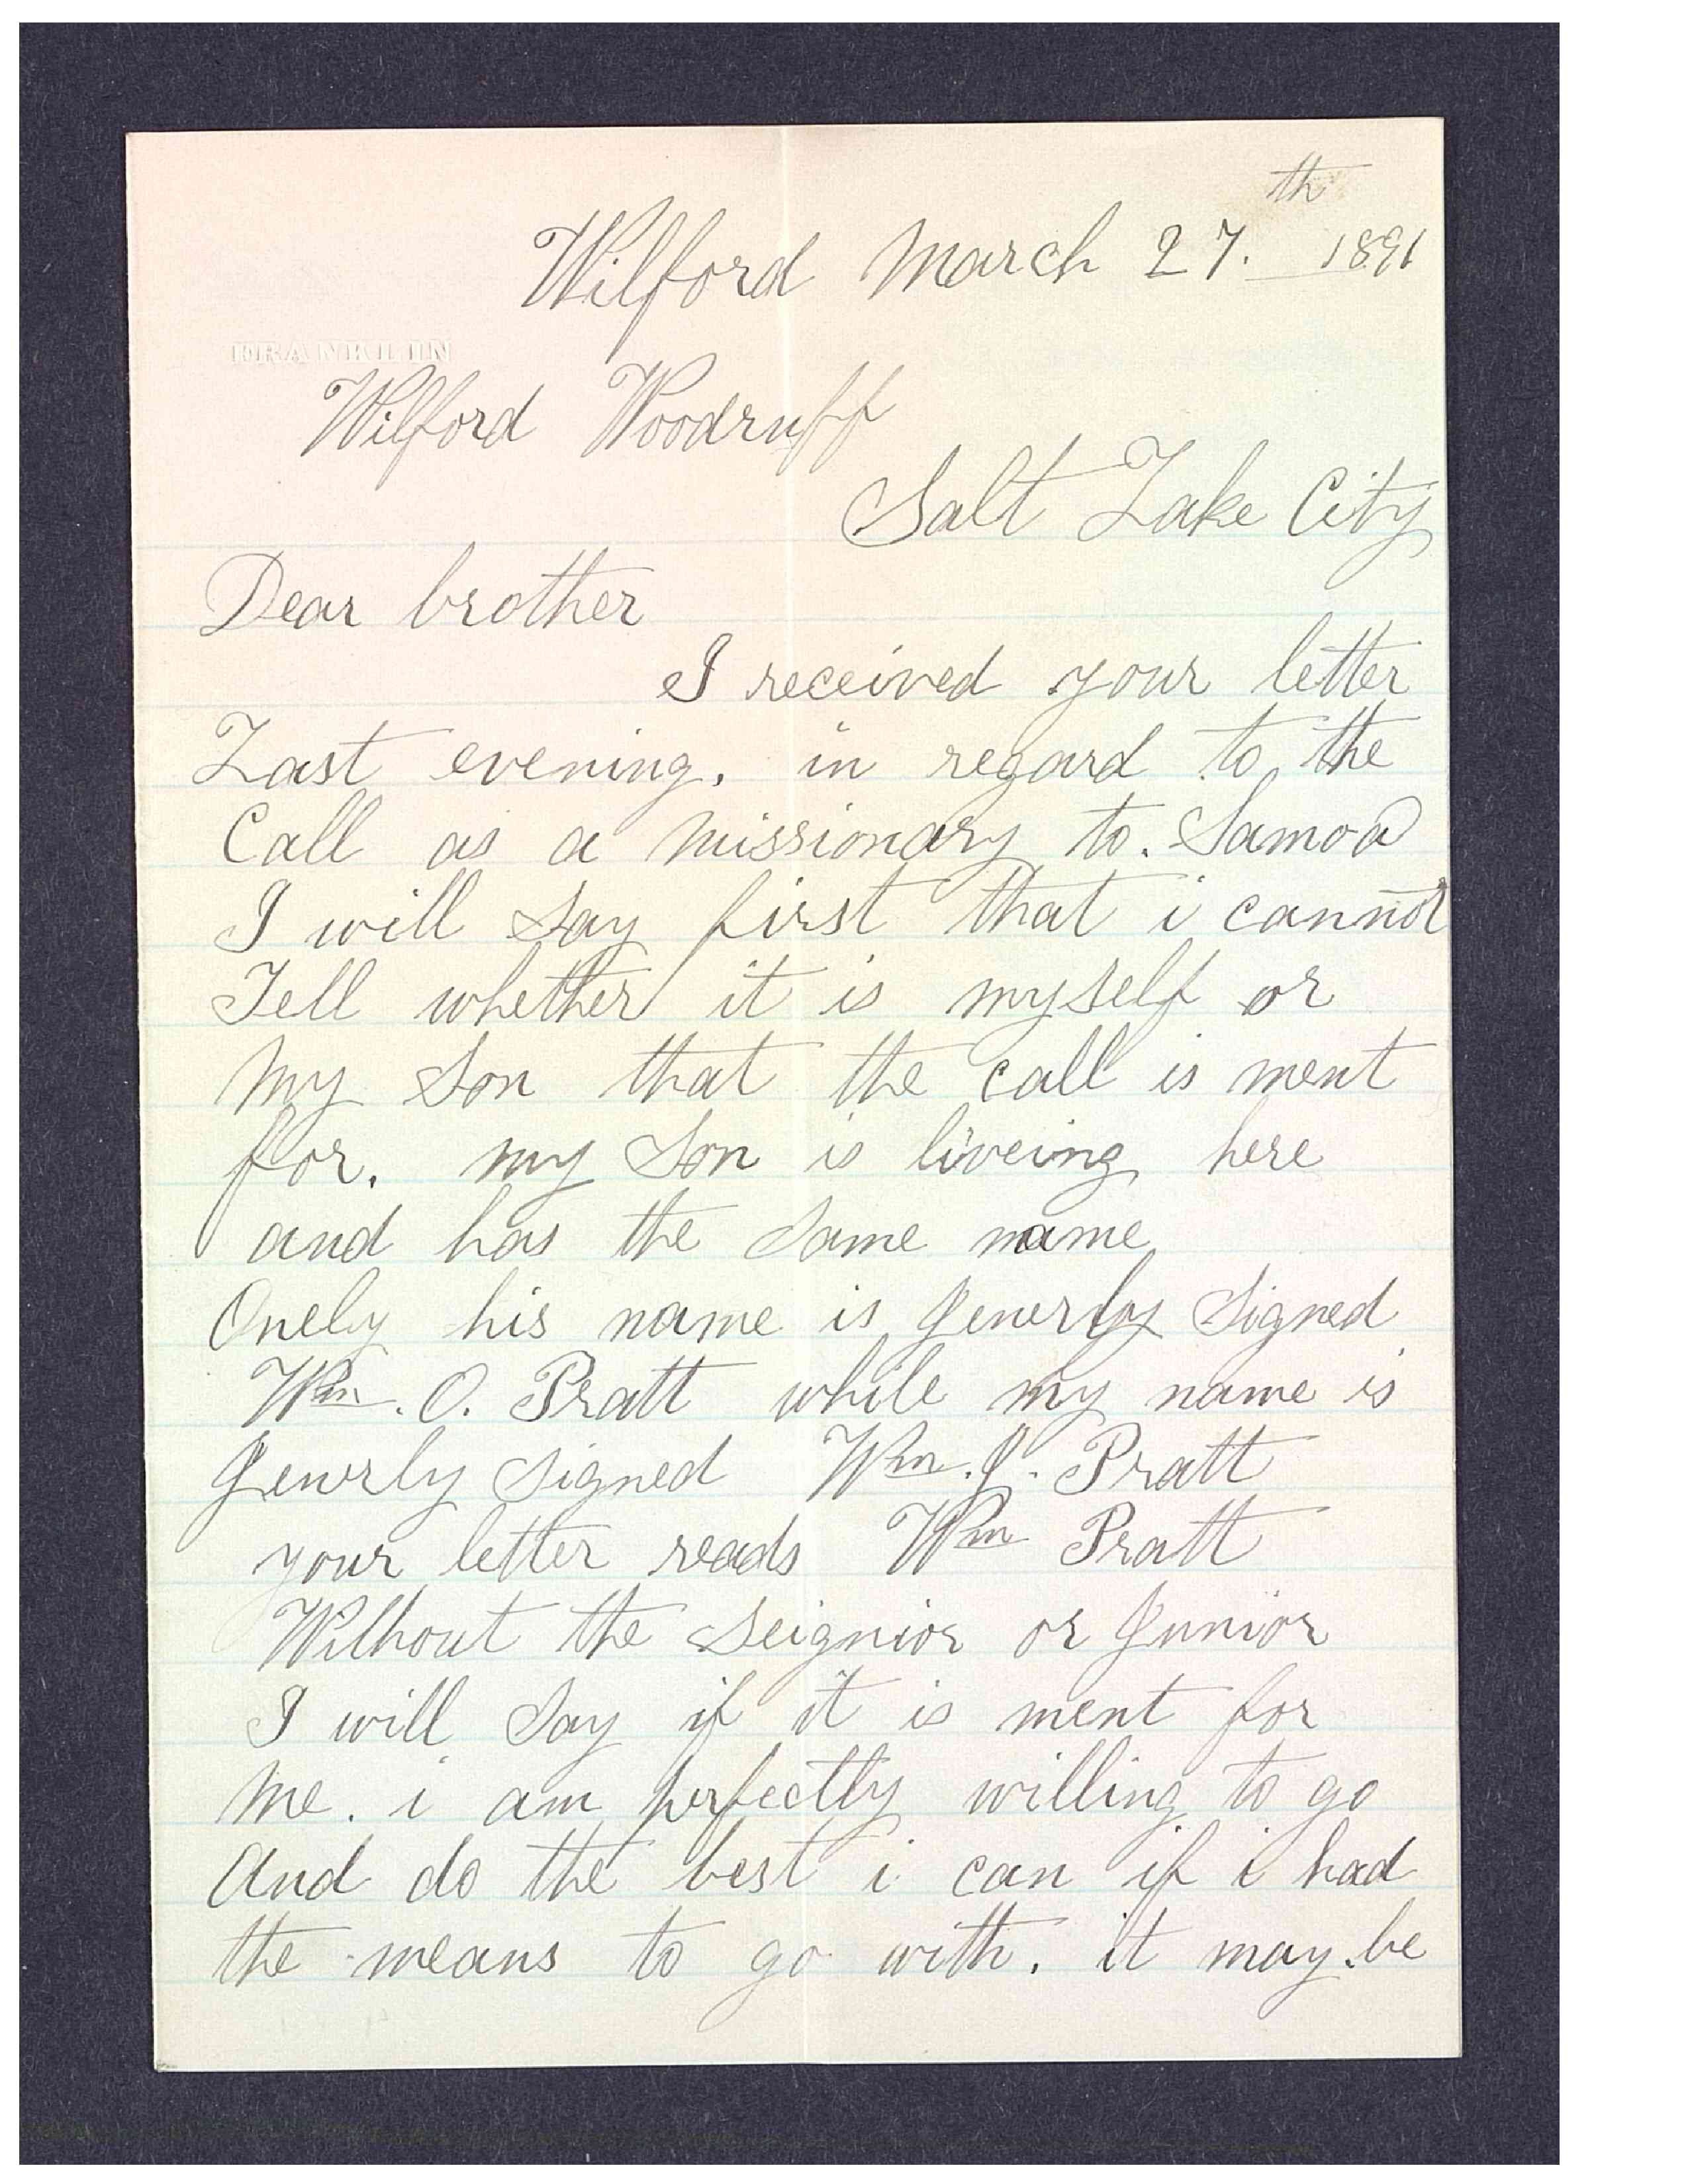 Wilford March 27.th 1891
FRANKLIN
Wilford Woodruff
Salt Lake City
Dear brother
I received your letter
Last evening. in regard to the
Call as a missionary to. Samoa
I will say first that i cannot
Tell whether it is myself or
my son that the call is ment
for. my Son is liveing here
and has the same name
Onely his name is generly signed
Wm. O. Pratt while my name is
genrly signed Wm. J. Pratt
your letter reads Wm Pratt
Without the seignior or Junior
I will say if it is ment for
me. i am perfectly willing to go
And do the best i can if i had
the means to go with. it may be